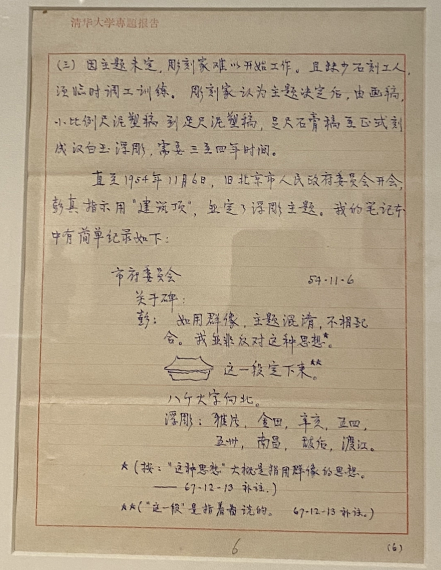 清华大学专题报告
(三) 因主题未定，彫刻家难以开始工作。且缺少石刻工人，
须临时调工训练。彫刻家认为主题决定后，由画稿，
小比例尺泥塑稿到足尺泥塑稿，足尺石膏稿至正式刻
成汉白玉浮彫，需要三至四年时间。
直至1954年11月6日，旧北京市人民政府委员会开会，
彭真指示用"建筑顶"，並定了浮彫主题。我的笔记本
中有简单纪录如下：
市府委员会 54-11-6
关于碑：
彭：如用群像，主题混淆，不相配
合。我並非反对这种思想*。
这一段定下来**。
八个大字向北。
浮彫：鸦片，金田，辛亥，五四，
五卅，南昌，敌后，渡江。
*(按："这种思想"大概是指用群像的思想。
—— 67-12-13 补注.)
**("这一段"是指着图说的。 67-12-13 补注.)
6
(6)